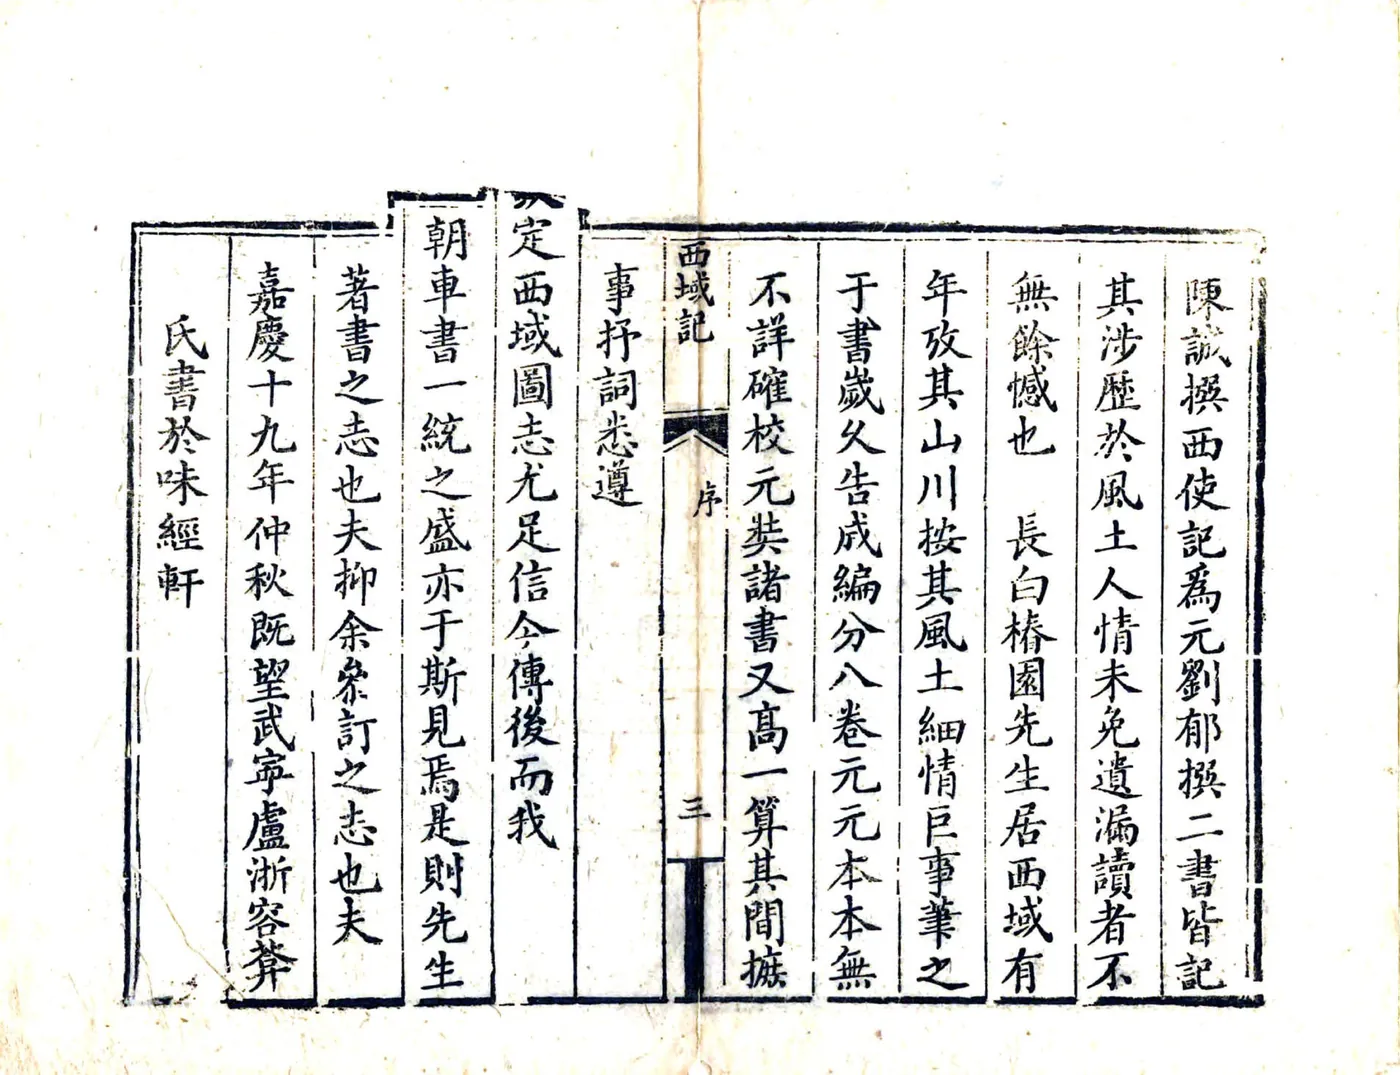 陳誠撰西使記爲元劉郁撰二書皆記
其涉歷於風土人情未免遺漏讀者不
無餘憾也　長白椿園先生居西域有
年攷其山川按其風土細情巨事筆之
于書歲久告成編分八卷元元本本無
不詳確校元奘諸書又高一算其間摭
西域記
序
三
事抒詞悉遵
定西域圖志尤足信今傳後而我
朝車書一統之盛亦于斯見焉是則先生
著書之志也夫抑余叅訂之志也夫
嘉慶十九年仲秋既望武寜盧浙容葊
氏書於味經軒